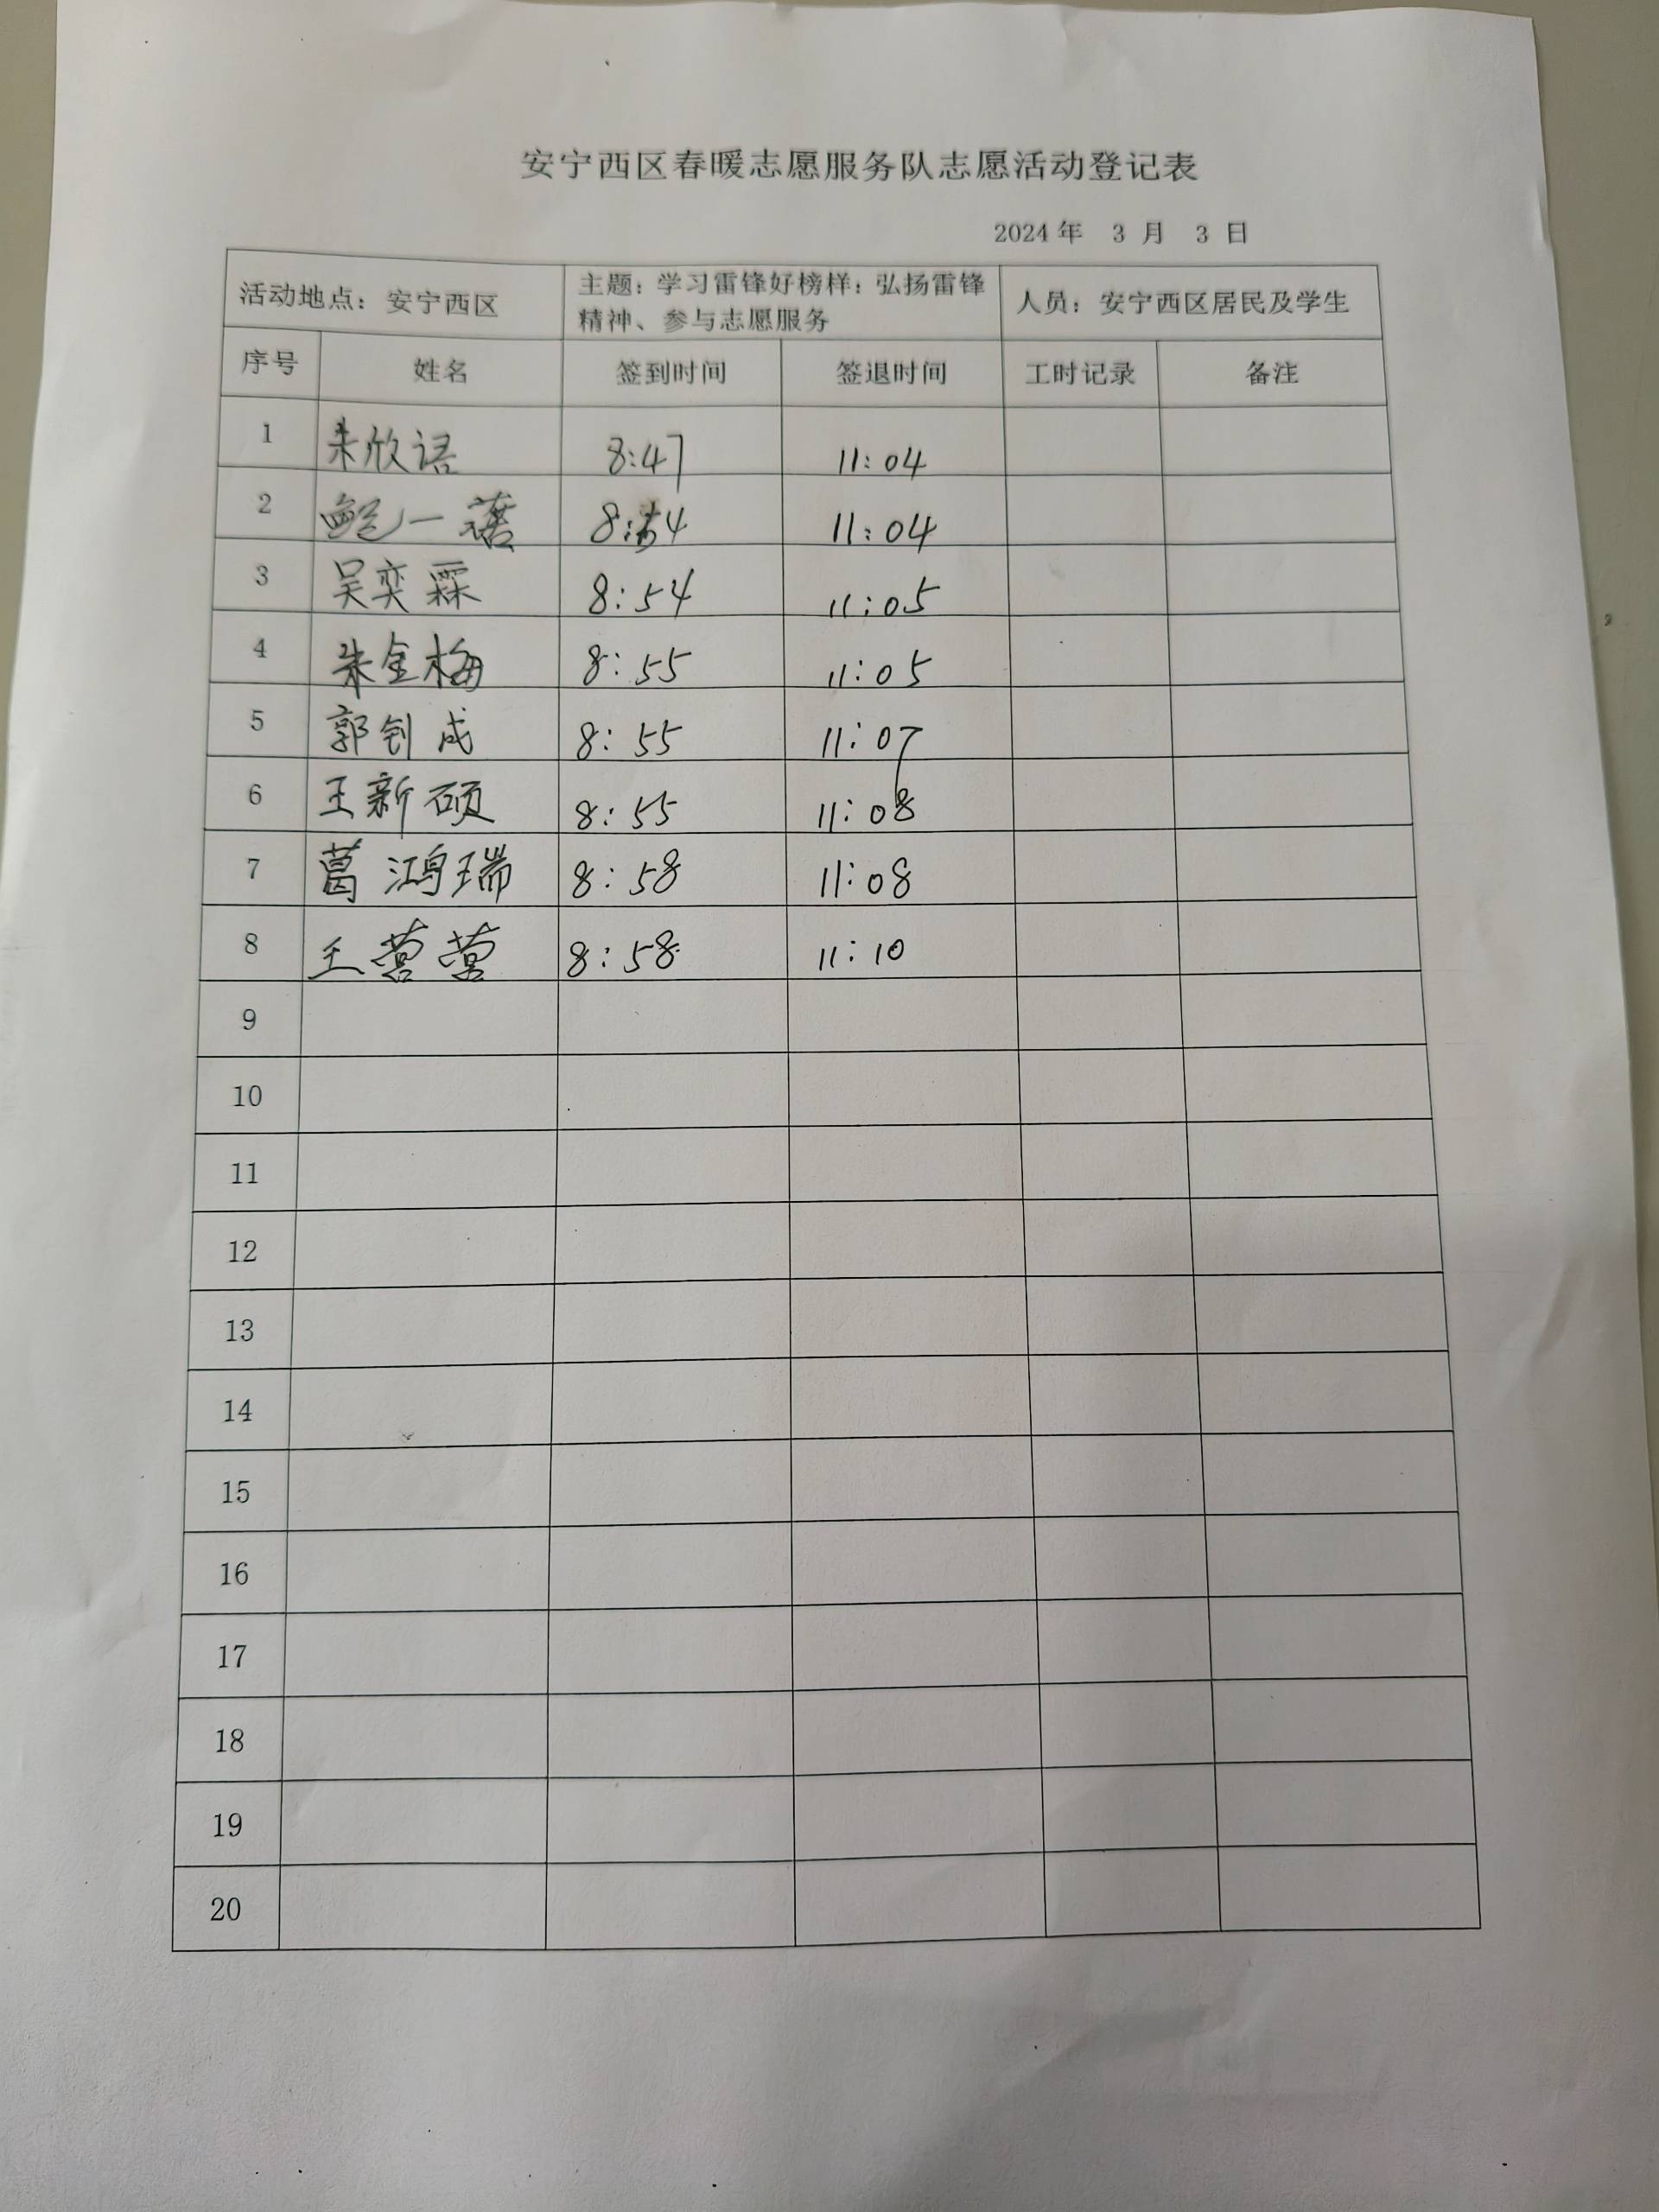 安宁西区春暖志愿服务队志愿活动登记表
2024年 3 月 3 日
活动地点：安宁西区 主题：学习雷锋好榜样：弘扬雷锋 人员：安宁西区居民及学生
精神、参与志愿服务
序号 姓名 签到时间 签退时间 工时记录 备注
1 朱欣语 8:47 11:04
2 鲍一 8:54 11:04
3 吴奕霖 8:54 11:05
4 朱金梅 8:55 11:05
5 郭钊成 8:55 11:07
6 王新硕 8:55 11:08
7 葛鸿瑞 8:58 11:08
8 王营营 8:58 11:10
9
10
11
12
13
14
15
16
17
18
19
20